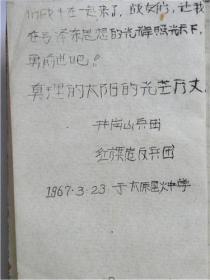 们战斗在一起来了,战友们,让我
在毛泽东思想的光辉照耀下,
勇前进吧!
真理的太阳的光芒万丈,
井岗山兵团
红旗造反兵团
1967·3·23 于太原星火中学